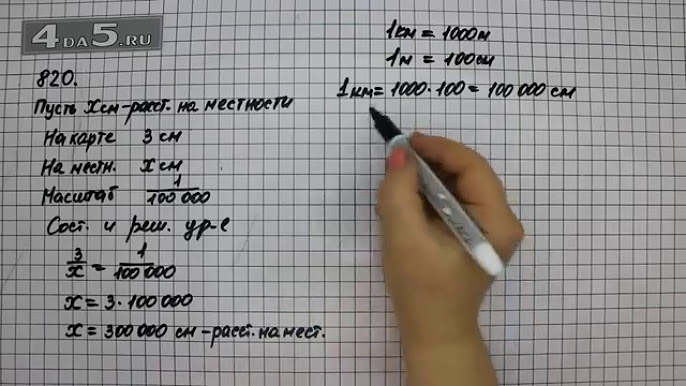 4DA5.RU
820.
Пусть x см - расст. на местности
На карте 3 см
На местн. x см
Масштаб 1/100 000
Сост. и реш. ур-е
3/x = 1/100 000
x = 3 · 100 000
x = 300 000 см - расст. на мест.
1 км = 1000 м
1 м = 100 см
1 км = 1000 · 100 = 100 000 см